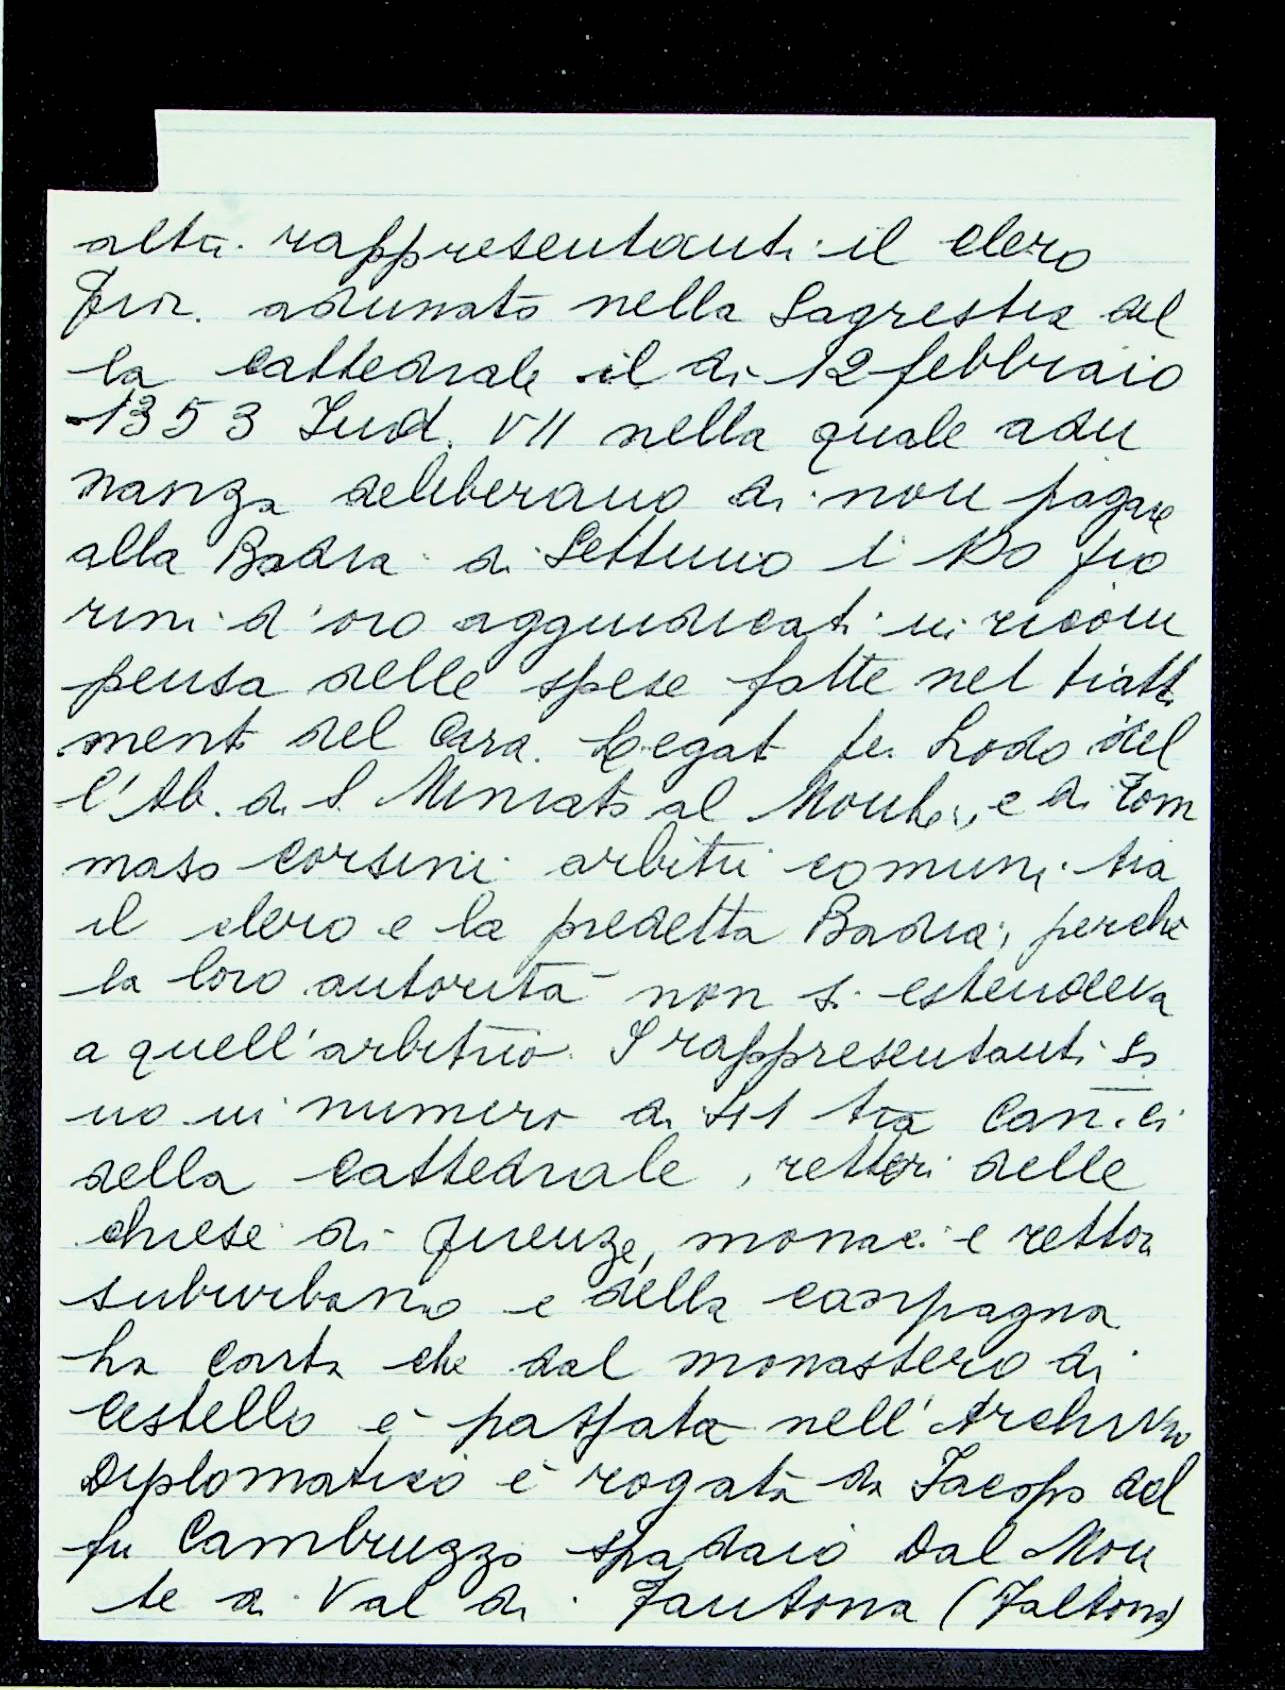 altri rappresentanti il clero
Fior. adunato nella Sagrestia del
la Cattedrale il dì 12 febbraio
1353 Ind. VII nella quale adu
nanza deliberano di non pagare
alla Badia di Settimo i 100 fio
rini d'oro aggiudicati in ricom
pensa delle spese fatte nel tratt
ment del Card. Legat Lodo del
l'Ab. di S. Miniato al Monte, e di Tom
maso Corsini arbitri comuni tra
il clero e la predetta Badia, perché
la loro autorità non si estendeva
a quell'arbitrio. I rappresentanti so
no in numero di tra Can.ci
della Cattedrale, rettori delle
chiese di Firenze, monaci e rettori
suburbano e della campagna
La carta che dal monastero di
Cestello è passata nell'Archivio
Diplomatico è rogata da Jacopo del
fu Cambruzzo spadaio Dal Mon
te di Val di Fautona (Faltona)